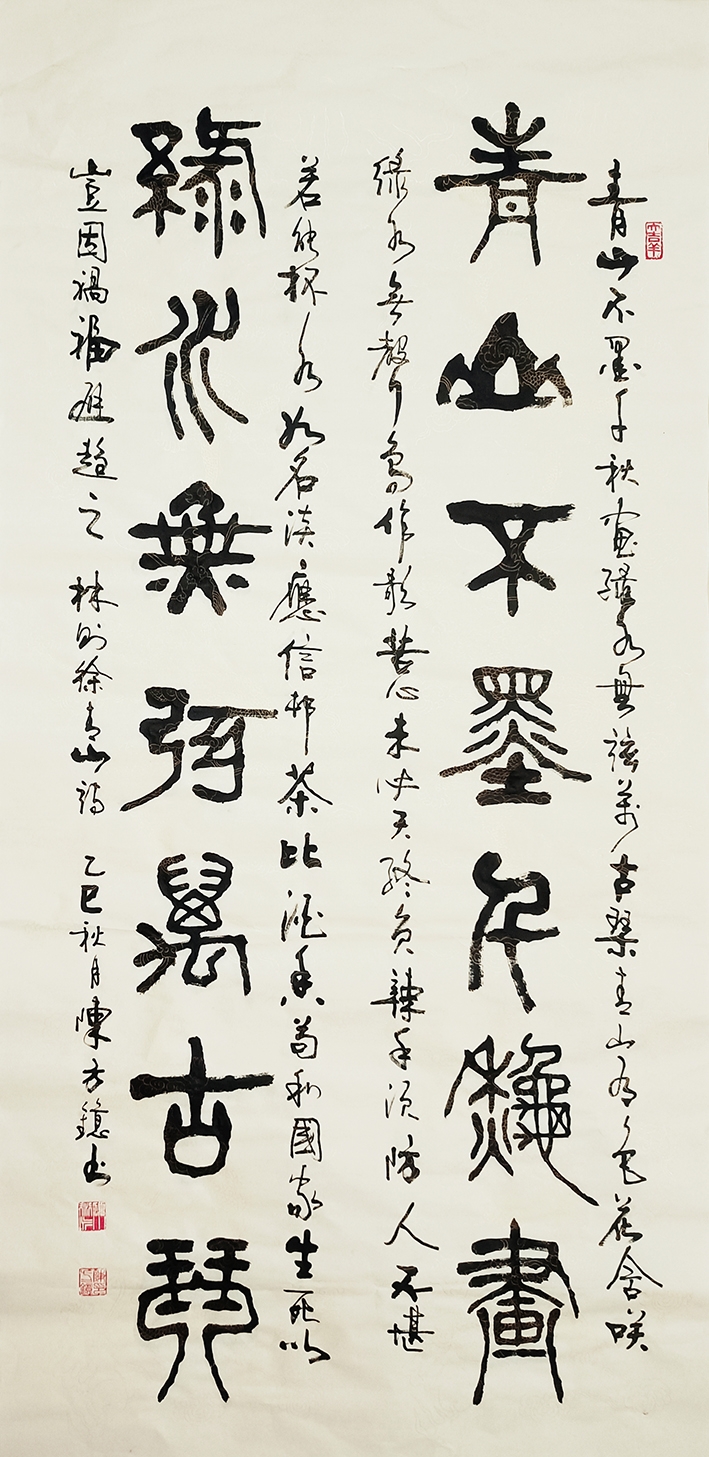 青山不墨千秋畫綠水無絃萬古琴青山有色花含咲
青山不墨千秋畫
綠水無聲鳥作歌苦心未必天終負辣手須防人不堪
若能杯水如名淡應信邨茶比酒香苟利國家生死以
綠水無弦萬古琴
豈因禍福避趨之 林則徐青山詩 乙巳秋月陳方書